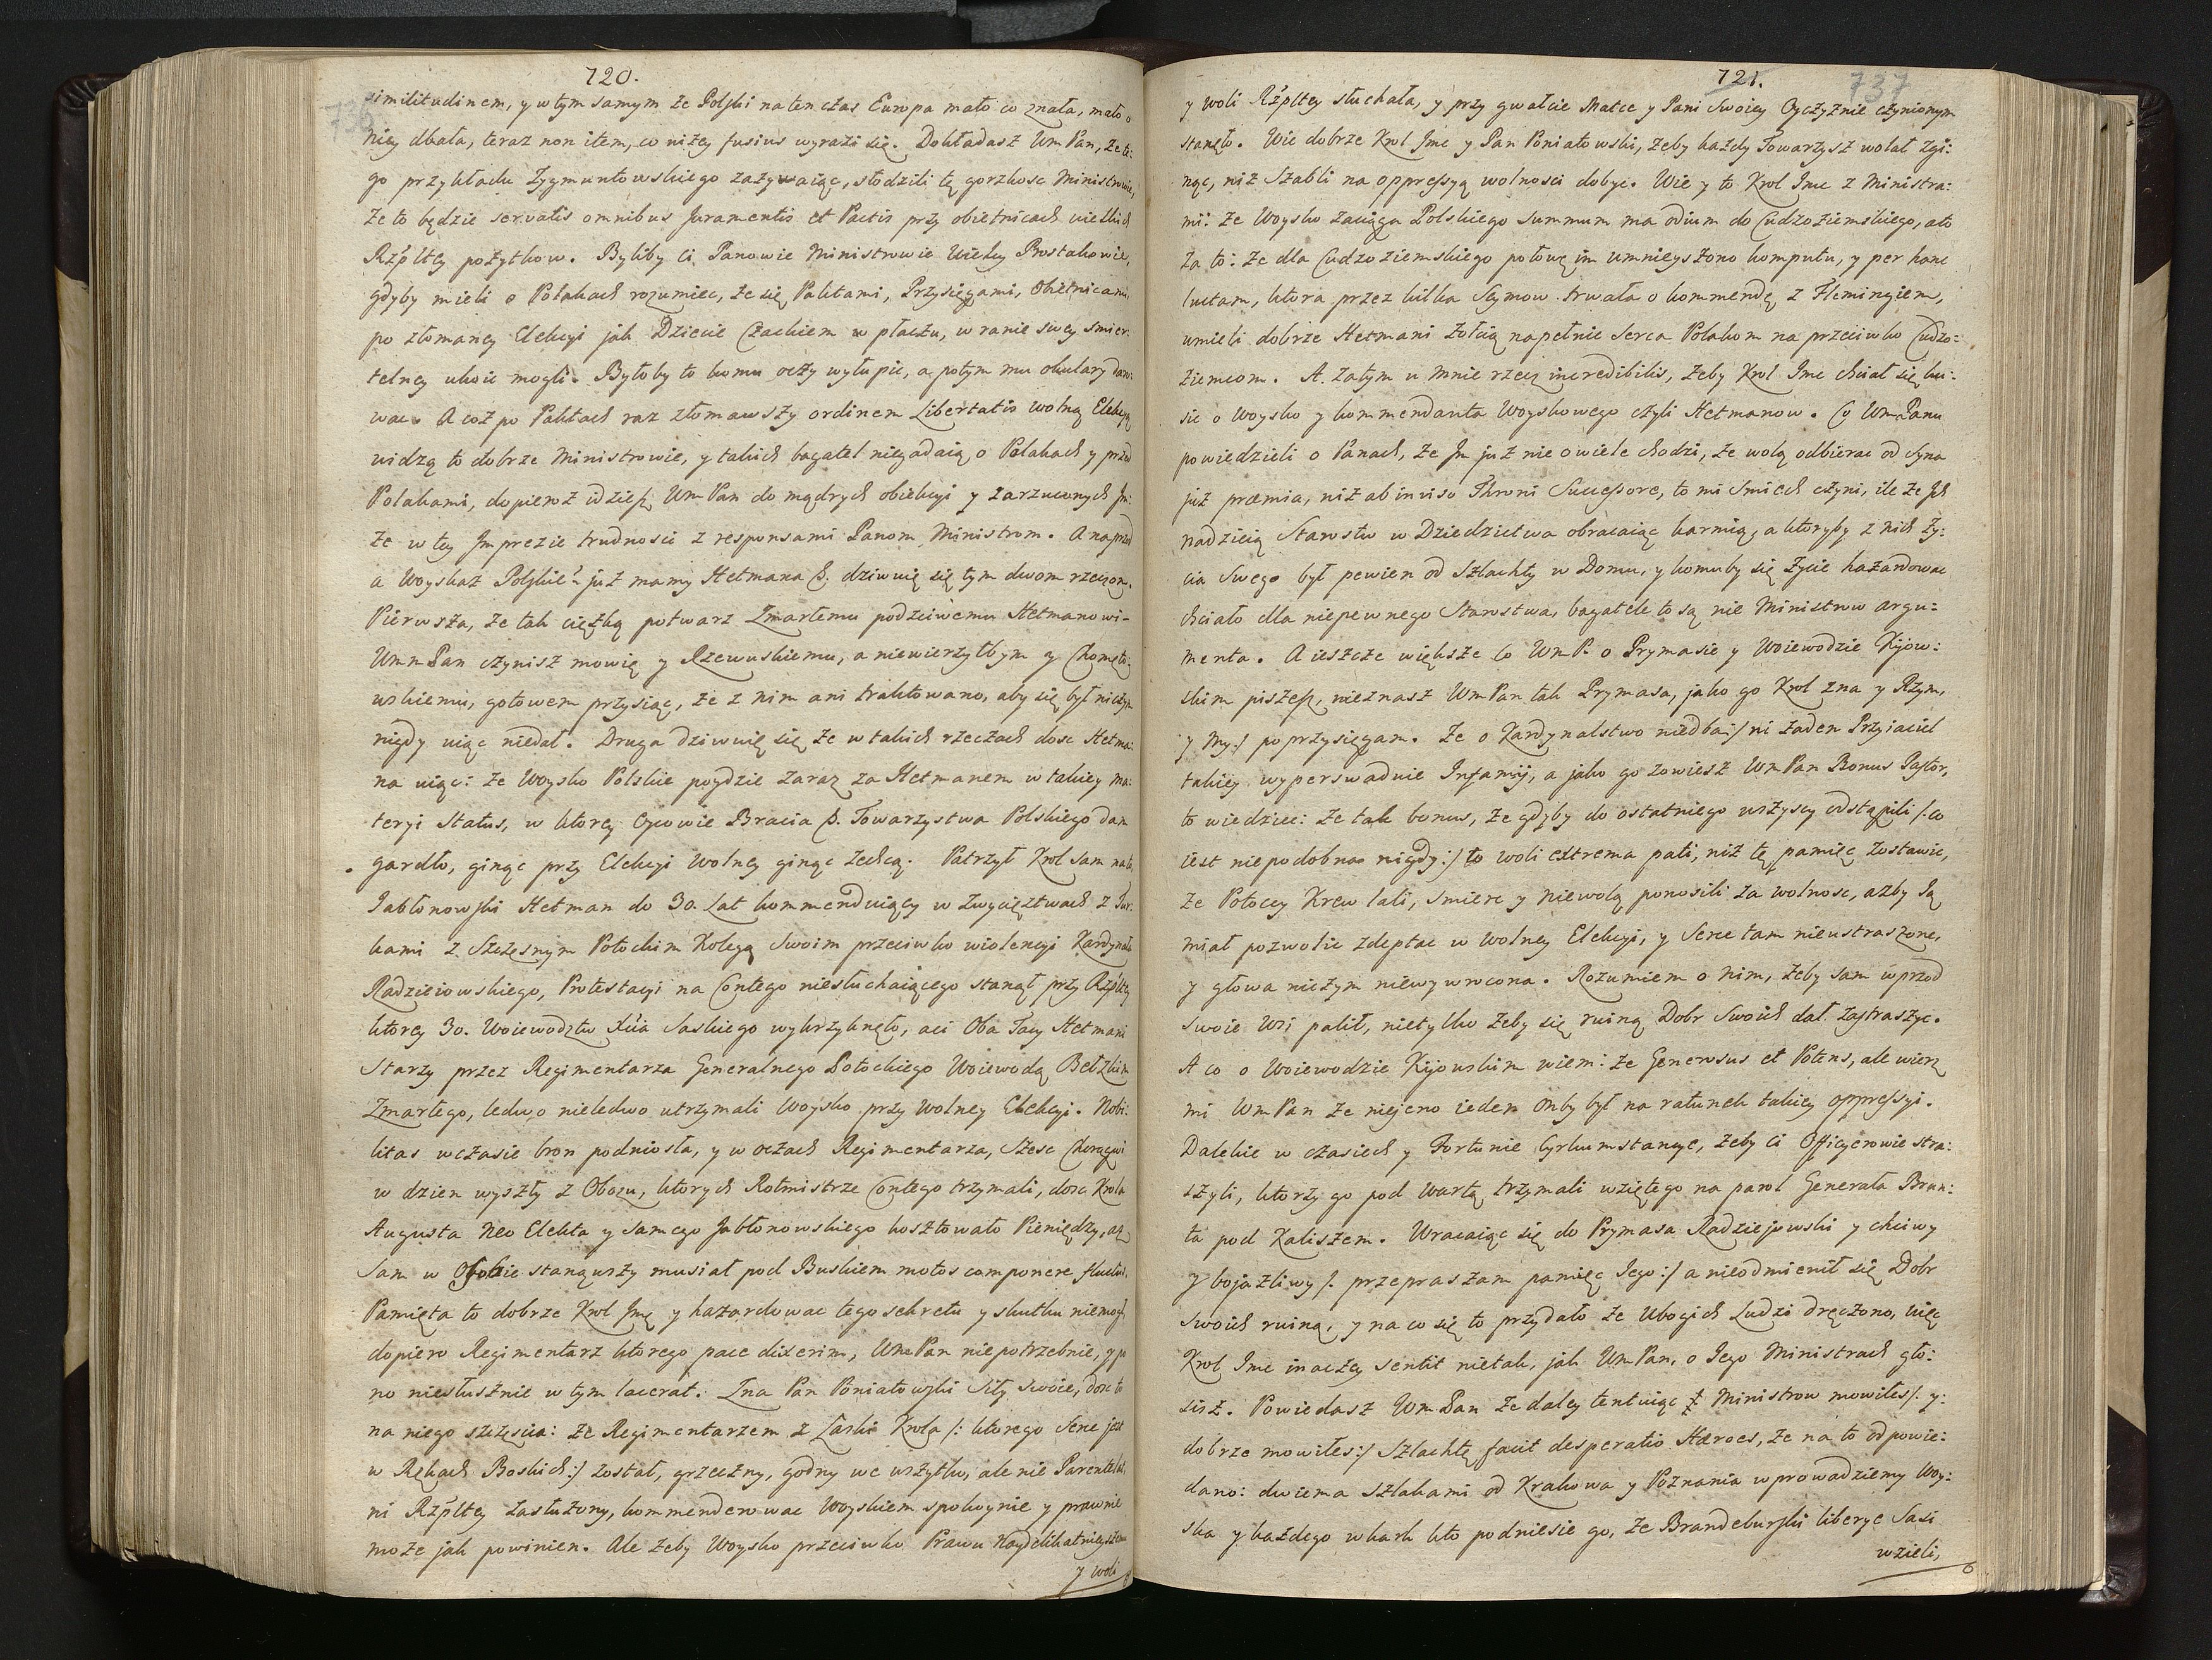 720.
736
similitudinem, y w tym samym że Polski na ten czas Europa mało co znała, mało o
niey dbała, teraz non item, co niżey fusius wyrazi się. Dokładasz WmPan, że te:
go przykładu Zygmuntowskiego zażywaiąc, słodzili tę gorzkosc Ministrowie,
że to będzie servatis omnibus Juramentis et Pactis przy obietnicach wielkich
Rzpltey pożytkow. Byliby Ci Panowie Ministrowie Wielcy Prostakowie,
gdyby mieli o Polakach rozumiec, że się Paktami, Przysięgami, Obietnicami,
po złomaney Elekcyi jak Dziecie Czackiem w płaczu, w ranie swey smier:
telney ukoic mogli. Byłoby to komu oczy wyłupic, a potym mu okulary daro:
wac. A coż po Paktach raz złomawszy ordinem Libertatis wolną Elekcyą
widzą to dobrze Ministrowie, y takich bagatel niegadaią o Polakach y przed
Polakami, dopieroż idziesz WmPan do mądrych obiekcyi y zarzuconych Im:
że w tey Imprezie trudnosci z responsami Panom Ministrom. A naprzod
a Woyskaż Polskie? już mamy Hetmana &. dziwuię się tym dwom rzeczom.
Pierwsza, że tak ciężką potwarz Zmarłemu podsciwemu Hetmanowi-
WmmPan czynisz mowię y Rzewuskiemu, a niewierzyłbym y Chomęto:
wskiemu, gotowem przysiąc, że z nim ani traktowano, aby się był niczym
nigdy uiąc niedał. Druga dziwuię się że w takich rzeczach dosc Hetma:
na uiąc: że Woysko Polskie poydzie zaraz za Hetmanem w takiey ma:
teryi Status, w ktorey Oycowie Bracia &. Towarzystwa Polskiego dam
gardło, ginąc przy Elekcyi Wolney ginąc zechcą. Patrzył Krol sam na to
Jabłonowski Hetman do 30. Lat kommenduiący w Zwycięztwach z Tur:
kami z Szczęsnym Potockim Kolegą Swoim przeciwko wiolencyi Kardynała
Radzieiowskiego, Protestacyi na Contego niesłuchaiącego stanął przy Rzpltey
ktorey 30. Woiewodztw Xcia Saskiego wykrzyknęło, aci Oba Tacy Hetmani
Starzy przez Regimentarza Generalnego Potockiego Woiewodę Bełzkim
Zmarłego, ledwo nieledwo utrzymali Woysko przy Wolney Elekcyi. Nobi:
litas wczasie bron podniosła, y w oczach Regimentarza, Szesc Chorągwi
w dzien wyszły z Obozu, ktorych Rotmistrze Contego trzymali, dosc Krola
Augusta Neo Elekta y samego Jabłonowskiego kosztowało Pieniędzy, aż
Sam w Obozie stanąwszy musiał pod Buskiem motos componere fluctus.
Pamięta to dobrze Krol Jmc y hazardowac tego sekretu y skutku niemogł
dopiero Regimentarz ktorego pace dixerim, WmPan niepotrzebnie, y po
no niesłusznie w tym lacerat. Zna Pan Poniatowski Siły swoie, dosc to
na niego szczęscia: że Regimentarzem z Łaski Krola /: ktorego Serce jest
w Rękach Boskich:/ został, grzeczny, godny we wszytko, ale nie Parentelat,
ni Rzpltey zasłużony, kommenderowac Woyskiem spokoynie y prawnie
może jak powinien. Ale żeby Woysko przeciwko Prawu Naydelikatnieyszemu
y woli
721.
737
y woli Rzpltey słuchała, y przy gwałcie Matce y Pani Swoiey Oyczyznie czynionym
stanęło. Wie dobrze Krol Jmc y Pan Poniatowski, żeby każdy Towarzysz wolał zgi:
nąc, niż Szabli na oppressyą wolnosci dobyc. Wie y to Krol Jmc z Ministra:
mi: że Woysko zaciągu Polskiego summum ma odium do Cudzoziemskiego, a to
za to: że dla Cudzoziemskiego połowę im umnieyszono komputu, y per hanc
luctam, ktora przez kilka Seymow trwała o kommendę z Flemingiem,
umieli dobrze Hetmani żołcią napełnic serca Polakom na przeciwko Cudzo:
ziemcom. A zatym u mnie rzecz incredibilis, żeby Krol Jmc chciał się ku:
sic o Woysko y kommendanta Woyskowego czyli Hetmanow. Co WmPanu
powiedzieli o Panach, że Jm już nie o wiele chodzi, że wolą odbierac od Syna
już præmia, niż ab inviso Throni Successore, to mi Smiech czyni, ile że Jch
nadzieią Starostw w Dziedzictwa obracaiąc karmią, a ktoryby z nich ży:
cia Swego był pewien od Szlachty w Domu, y komuby się życie hazardowac
chciało dla niepewnego Starostwa, bagatele to są nie Ministrow argu:
menta. A ieszcze większe co WmP. o Prymasie y Woiewodzie Kijow:
skim piszesz, nieznasz WmPan tak Prymasa, jako go Krol zna y Rzym,
y My:/ poprzysięgam. że o Kardynalstwo niedba:/ ni żaden Przyiaciel
takiey wyperswaduie Infamij, a jako go zowiesz WmPan Bonus Pastor,
to wiedziec: że tak bonus, że gdyby do ostatniego wszyscy odstąpili /: co
iest niepodobna nigdy:/ to woli extrema pati, niż tę pamięc zostawic,
że Potoccy Krew lali, smierc y niewolą ponosili za wolnosc, azby Ją
miał pozwolic zdeptac w wolney Elekcyi, y Serce tam nieustraszone,
y głowa niczym niewywrocona. Rozumiem o nim, żeby sam wprzod
swoie Wsi palił, nietylko żeby się ruiną Dobr Swoich dał zastraszyc.
A co o Woiewodzie Kijowskim wiem: że Generosus et Potens, ale wierz
mi WmPan że niejeno ieden Onby był na ratunek takiey oppressyi.
Dalekie w czasiech y Fortunie Cyrkumstancye, żeby Ci Officyerowie stra:
szyli, ktorzy go pod Wartą trzymali wziętego na parol Generała Bran:
ta pod Kaliszem. Wracaiąc się do Prymasa Radziejowski y chciwy
y bojazliwy /: przepraszam pamięc Jego:/ a nieodmienił się Dobr
swoich ruiną, y na co się to przydało że Ubogich Ludzi dręczono, więc
Krol Jmc inaczey sentit nietak, jak WmPan, o Jego Ministrach gło:
sisz. Powiedasz WmPan że daley tentuiąc z Ministrow mowiłes /: y:
dobrze mowiłes:/ Szlachtę facit desperatio Hæroes, że na to odpowie:
dano: dwiema szlakami od Krakowa y Poznania wprowadziemy Woy:
ska y każdego w kark kto podniesie go, że Brandeburski liberye Sasi
wzieli,